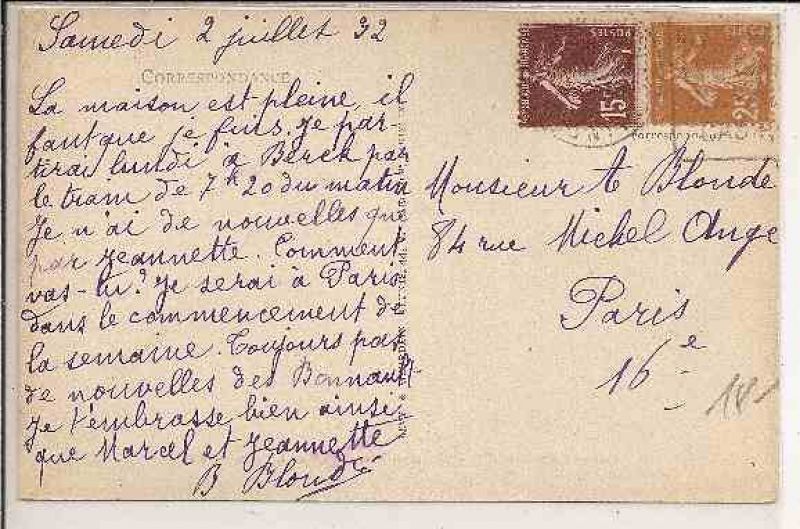 Samedi 2 juillet 32
CORRESPONDANCE
La maison est pleine, il
faut que je fuis. Je par-
tirai lundi à Berck par
le tram de 7h20 du matin
Je n'ai de nouvelles que
par Jeannette. Comment
vas-tu? Je serai à Paris
dans le commencement de
la semaine. Toujours pas
de nouvelles des Bonnault
Je t'embrasse bien ainsi
que Marcel et Jeannette
B Blondé
POSTES
15
25
Monsieur A Blondé
84 rue Michel Ange
Paris
16e